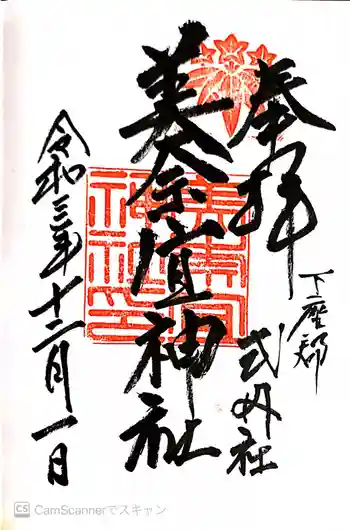 奉拝
下座郡
式内社
美奈宜神社
令和三年十二月一日
CS CamScannerでスキャン